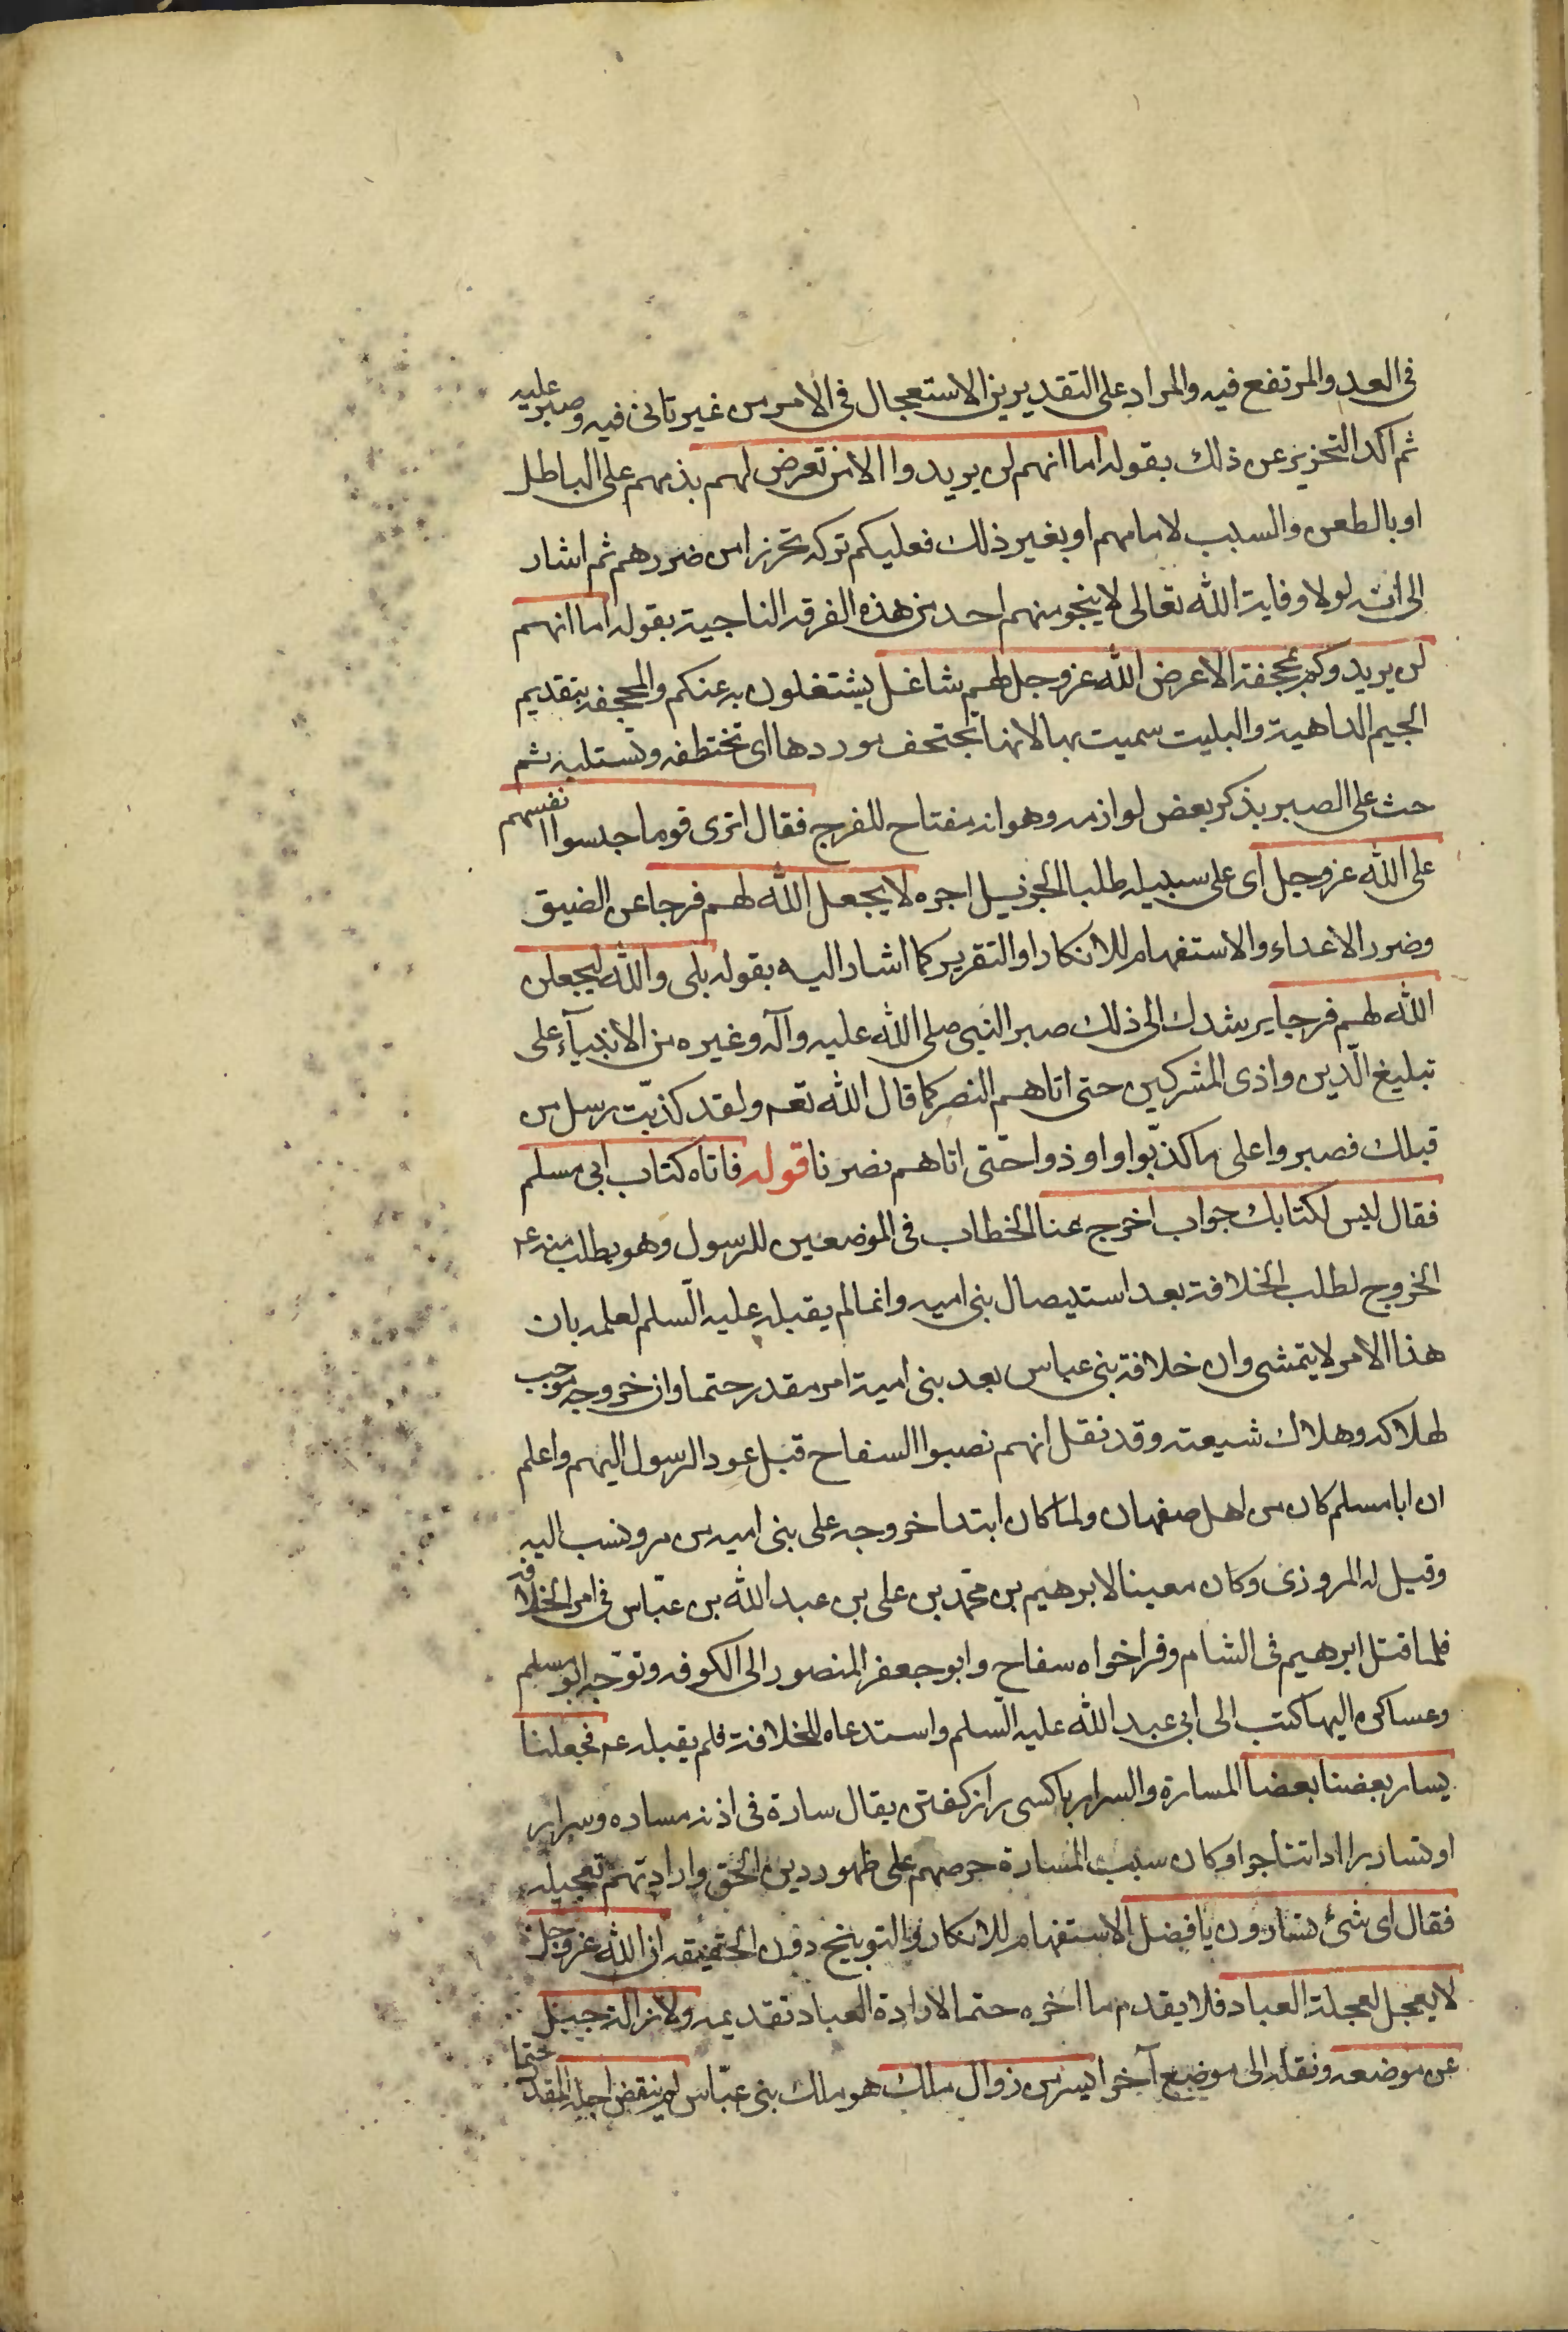 فى العدو والمرتفع فيه والمراد على التقديرين الاستعجال فى الامر من غير تانى فيه وصبر عليه
ثم اكد التحزيز عن ذلك بقوله اما انهم لن يريدوا الا من تعرض لهم بذمهم على الباطل
او بالطعن والسبب لامامهم او بغير ذلك فعليكم تركه تحرزا من ضررهم ثم اشار
الى انه لولا وقاية الله تعالى لا ينجو منهم احد من هذه الفرقه الناجية بقوله اما انهم
لن يريدوكم بمجحفة الا عرض الله عز وجل لهم بشاغل يشتغلون به عنكم والمجحفه بتقديم
الجيم الداهية والبليت سميت بها لانها تجتحف موردها اى تختطفه وتستلبه ثم
حث على الصبر بذكر بعض لوازمه وهو انه مفتاح للفرج فقال اترى قوما حبسوا انفسهم
على الله عز وجل اى على سبيله طلبا لجزيل اجره لا يجعل الله لهم فرجا عن الضيق
وضرر الاعداء والاستفهام للانكار او التقرير كما اشار اليه بقوله بلى والله ليجعلن
الله لهم فرجا يرشدك الى ذلك صبر النبى صلى الله عليه وآله وغيره من الانبيآء على
تبليغ الدين واذى المشركين حتى اتاهم النصر كما قال الله تعـ ولقد كذّبت رسل من
قبلك فصبروا على ما كذّبوا واوذوا حتّى اتاهم نصرنا قوله فاتاه كتاب ابى مسلم
فقال ليس لكتابك جواب اخرج عنا الخطاب فى الموضعين للرسول وهو يطلب منه عـ
الخروج لطلب الخلافة بعد استيصال بنى اميه وانما لم يقبله عليه السّلم لعلمه بان
هذا الامر لا يتمشى وان خلافة بنى عباس بعد بنى امية امر مقدر حتما وان خروجه موجب
لهلاكه وهلاك شيعته وقد نقل انهم نصبوا السفاح قبل عود الرسول اليهم واعلم
ان ابا مسلم كان من اهل صفهان ولما كان ابتدا خروجه على بنى اميه من مرو نسب اليه
وقيل له المروزى وكان معينا لابرهيم بن محمّد بن على بن عبد الله بن عبّاس فى امر الخلافه
فلما قتل ابرهيم فى الشام وفر اخواه سفاح وابو جعفر المنصور الى الكوفه وتوجّه ابو مسلم
وعساكره اليها كتب الى ابى عبد الله عليه السّلم واستدعاه للخلافة فلم يقبله عـ فجعلنا
يسار بعضنا بعضا المسارة والسرار با كسى راز كفتن يقال سارة فى اذنه مساره وسرارا
او تساررا اذا تناجوا وكان سبب المسارة حرصهم على ظهور دين الحق وارادتهم تعجيله
فقال اى شئ تسارون يا فضل الاستفهام للانكار والتوبيخ دون الحقيقه ان الله عز وجل
لا يعجل لعجلة العباد فلا يقدم ما اخره حتما لارادة العباد تقديمه ولازالة جبل
عن موضعه ونقله الى موضع آخر ايسر من زوال ملك هو ملك بنى عبّاس لم ينقض اجله المقدر حتما